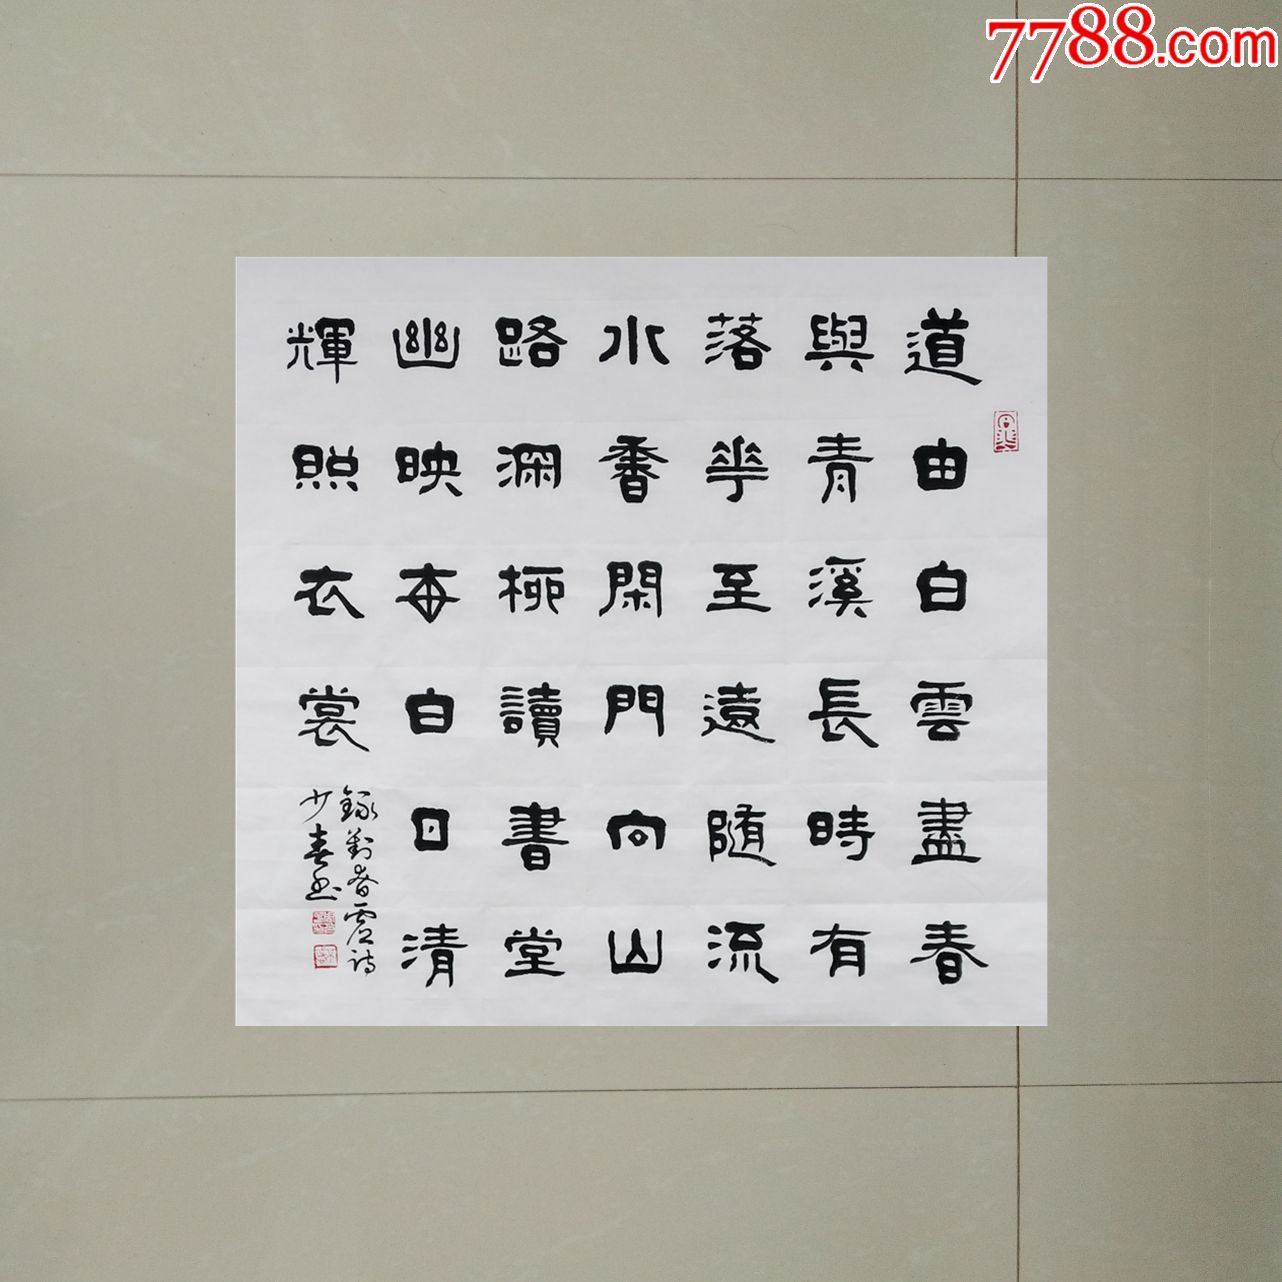 道由白雲盡春
與青溪長時有
落華至遠隨流
水香閑門向山
路深柳讀書堂
幽映每白日清
輝照衣裳
錄劉眘虛詩
少春書
7788.com